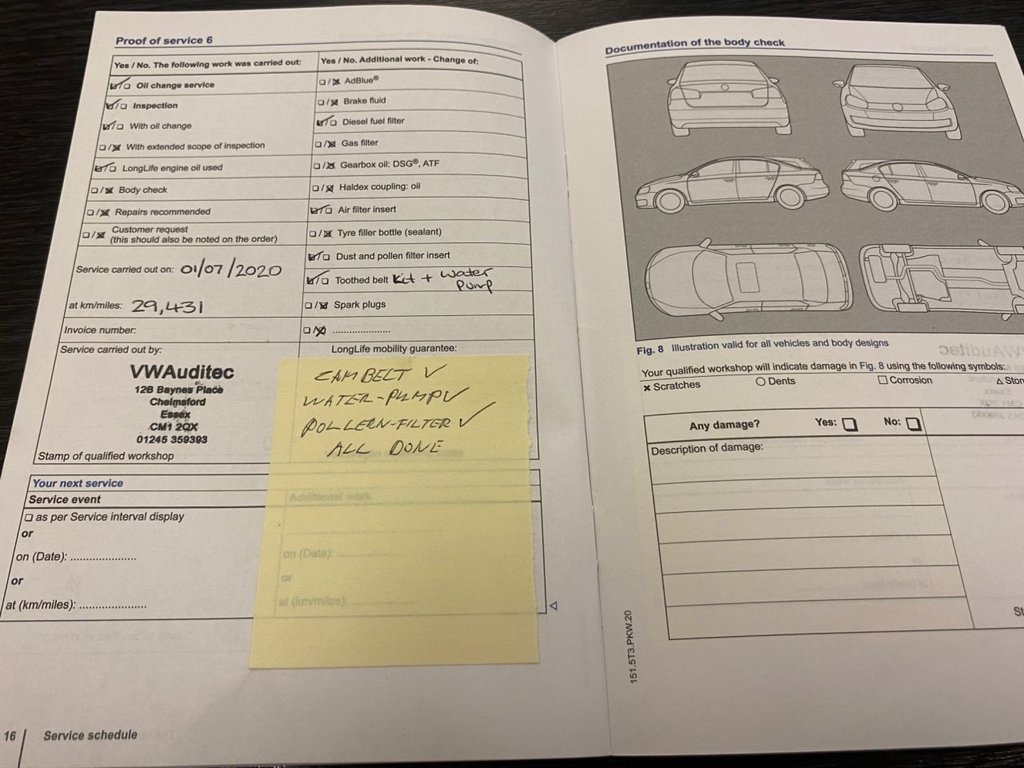 Proof of service 6
Yes / No. The following work was carried out:
Oil change service
Inspection
With oil change
With extended scope of inspection
LongLife engine oil used
Body check
Repairs recommended
Customer request
(this should also be noted on the order)
Service carried out on: 01/07/2020
at km/miles: 29,431
Invoice number:
Service carried out by:
VWAuditec
12B Baynes Place
Chelmsford
Essex
CM1 2QX
01245 359393
Stamp of qualified workshop
Yes / No. Additional work - Change of:
AdBlue®
Brake fluid
Diesel fuel filter
Gas filter
Gearbox oil: DSG®, ATF
Haldex coupling: oil
Air filter insert
Tyre filler bottle (sealant)
Dust and pollen filter insert
Toothed belt kit + water
pump
Spark plugs
.....................
LongLife mobility guarantee:
CAMBELT ✓
WATER-PUMP ✓
POLLERN-FILTER ✓
ALL DONE
Your next service
Service event
as per Service interval display
or
on (Date): .....................
or
at (km/miles): .....................
Additional work
on (Date):
or
at (km/miles):
16 Service schedule
Documentation of the body check
Fig. 8 Illustration valid for all vehicles and body designs
Your qualified workshop will indicate damage in Fig. 8 using the following symbols:
× Scratches ○ Dents □ Corrosion △ Ston
Any damage? Yes: No:
Description of damage:
St
151.5T3.PKW.20